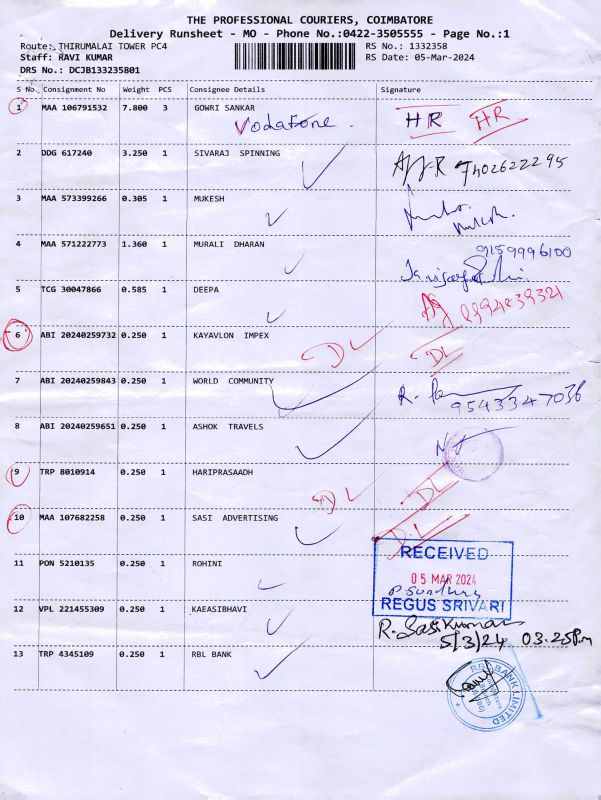 THE PROFESSIONAL COURIERS, COIMBATORE
Delivery Runsheet - MO - Phone No.:0422-3505555 - Page No.:1
Route: THIRUMALAI TOWER PC4 RS No.: 1332358
Staff: RAVI KUMAR RS Date: 05-Mar-2024
DRS No.: DCJB133235801
S No. Consignment No Weight PCS Consignee Details Signature
1 MAA 106791532 7.800 3 GOWRI SANKAR
Vodafone. HR HR
2 DDG 617240 3.250 1 SIVARAJ SPINNING
7402622295
3 MAA 573399266 0.305 1 MUKESH
4 MAA 571222773 1.360 1 MURALI DHARAN 9159996100
5 TCG 30047866 0.585 1 DEEPA
6 ABI 20240259732 0.250 1 KAYAVLON IMPEX
DL DL
7 ABI 20240259843 0.250 1 WORLD COMMUNITY
9543347036
8 ABI 20240259651 0.250 1 ASHOK TRAVELS
9 TRP 8010914 0.250 1 HARIPRASAADH
DL DL
10 MAA 107682258 0.250 1 SASI ADVERTISING
D.L
RECEIVED
11 PON 5210135 0.250 1 ROHINI
05 MAR 2024
12 VPL 221455309 0.250 1 KAEASIBHAVI
REGUS SRIVARI
R. Sasikumar
5/3/24 03.25Pm
13 TRP 4345109 0.250 1 RBL BANK
RBL BANK LIMITED